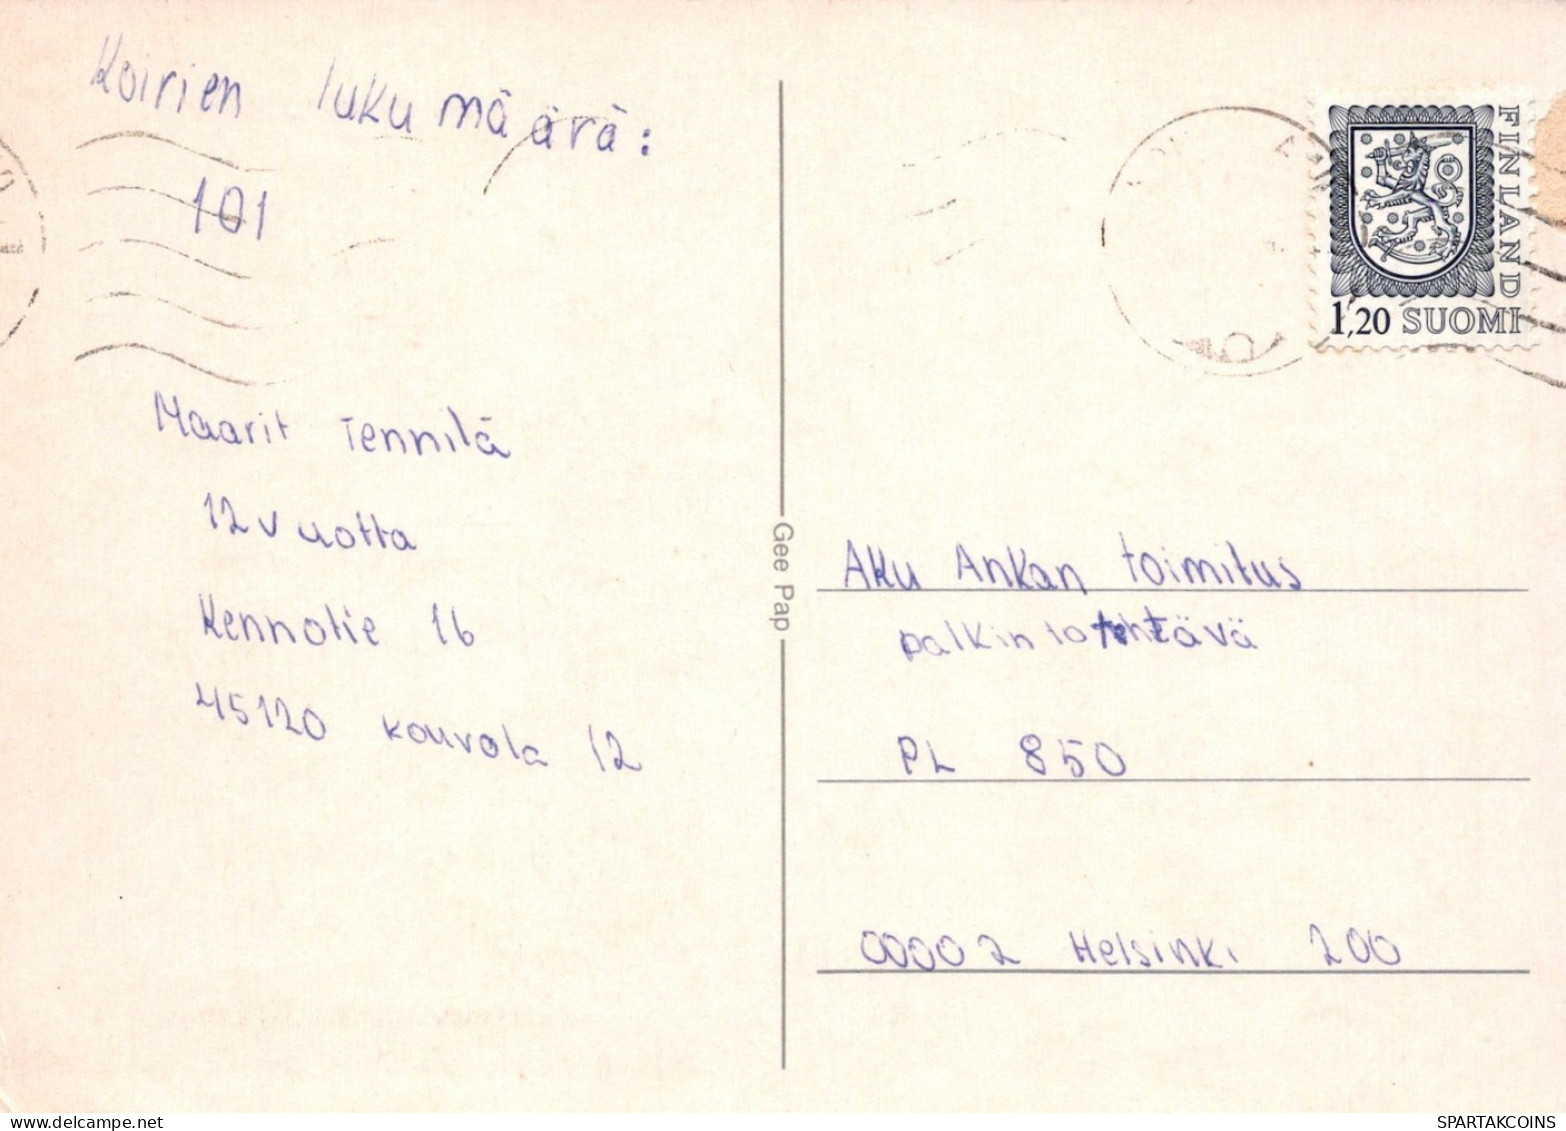 Koirien lukumäärä:
101
Maarit Tennilä
12 vuotta
Kennotie 16
45120 Kouvola 12
Gee Pap
FINLAND
1,20 SUOMI
Aku Ankan toimitus
palkintotehtävä
PL 850
00002 Helsinki 200
SPARTAKCOINS